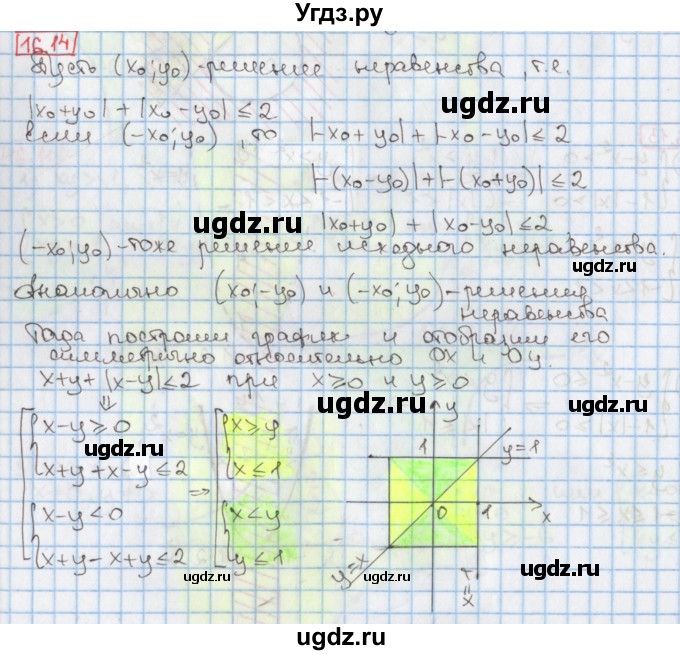 Угдз.ру
16.14
Пусть (x₀; y₀) - решение неравенства, т.е.
|x₀+y₀| + |x₀-y₀| ≤ 2
если (-x₀; y₀), то |-x₀+y₀|+|-x₀-y₀| ≤ 2
|-(x₀-y₀)|+|-(x₀+y₀)| ≤ 2
ugdz.ru
|x₀+y₀| + |x₀-y₀| ≤ 2
(-x₀; y₀) - тоже решение исходного неравенства.
ugdz.ru
Аналогично (x₀; -y₀) и (-x₀; y₀) - решения
неравенства
ugdz.ru
Тогда построим график и отобразим его
симметрично относительно Ox и Oy.
x+y+ |x-y| ≤ 2 при x ≥ 0 и y ≥ 0
⇓
ugdz.ru
x-y ≥ 0
x+y+x-y ≤ 2
x-y < 0
x+y-x+y ≤ 2
⇒
x ≥ y
x ≤ 1
x < y
y ≤ 1
ugdz.ru
y
1
y=1
0
1
x
y=x
x=1
ugdz.ru
ugdz.ru
ugdz.ru
ugdz.ru